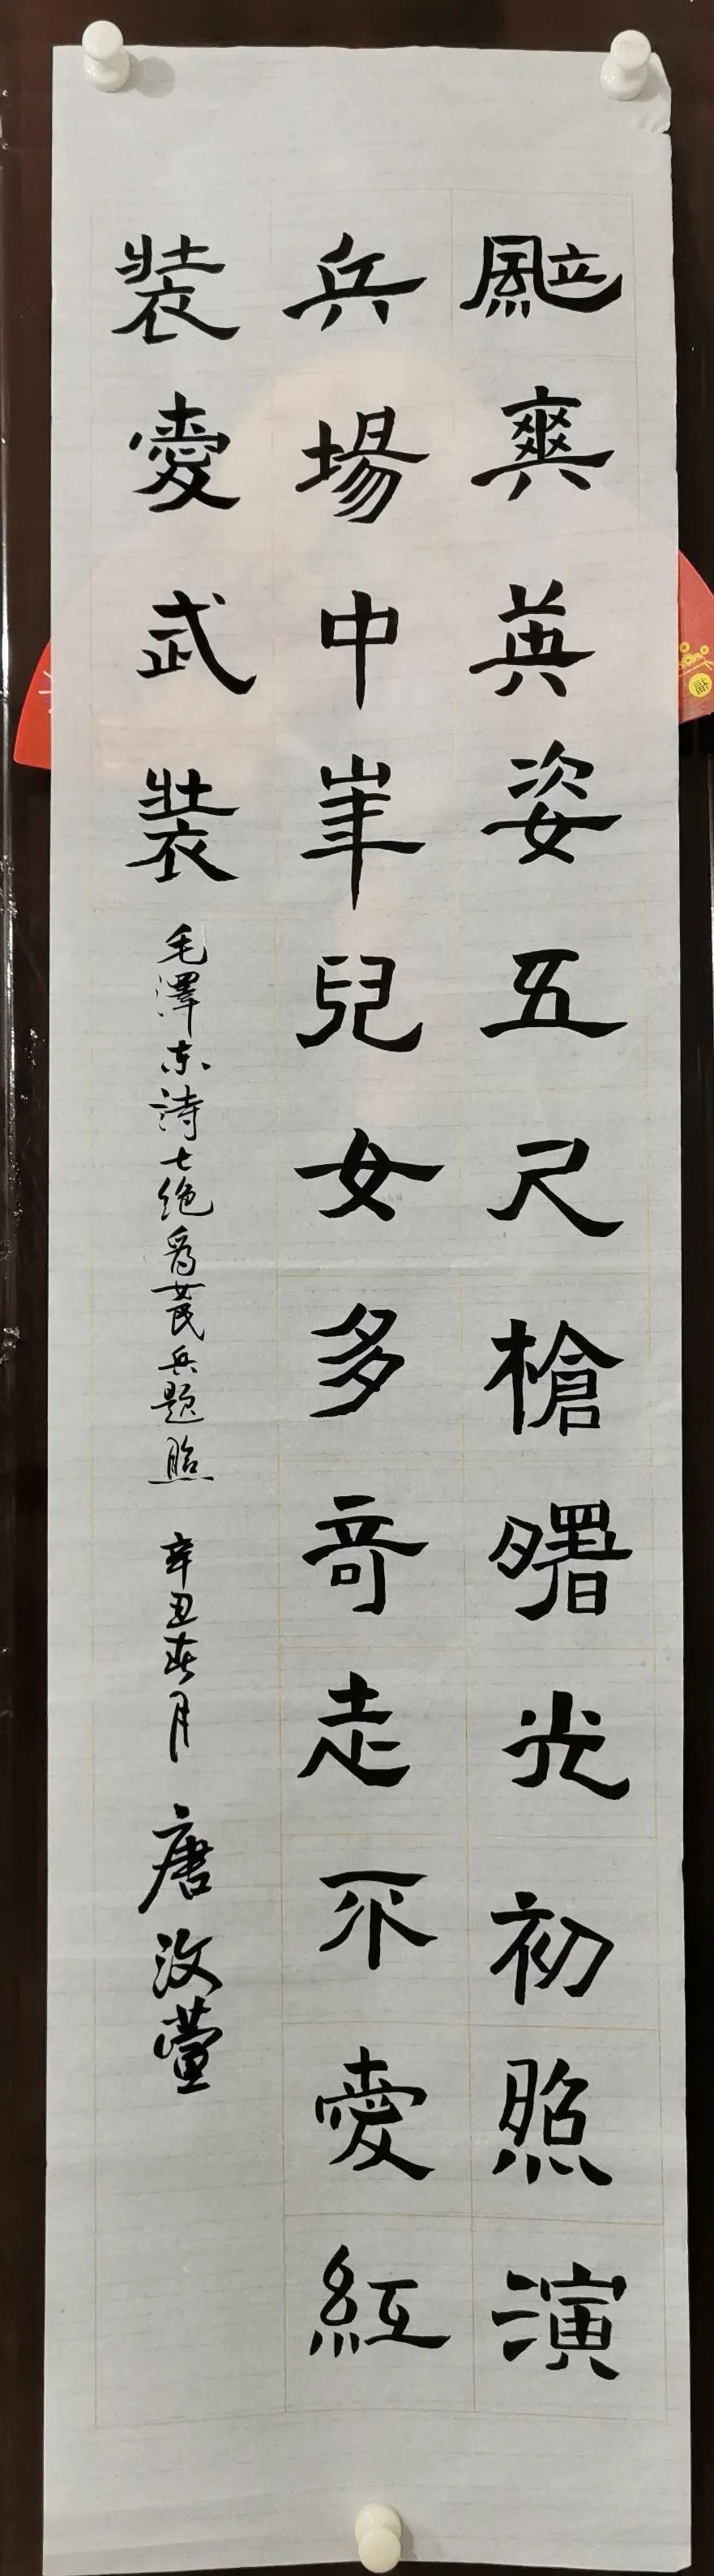 颯爽英姿五尺槍曙光初照演
兵場中華兒女多奇志不愛紅
裝愛武裝
毛澤东诗七绝爲女民兵題照 辛丑春月 唐汝萱
福